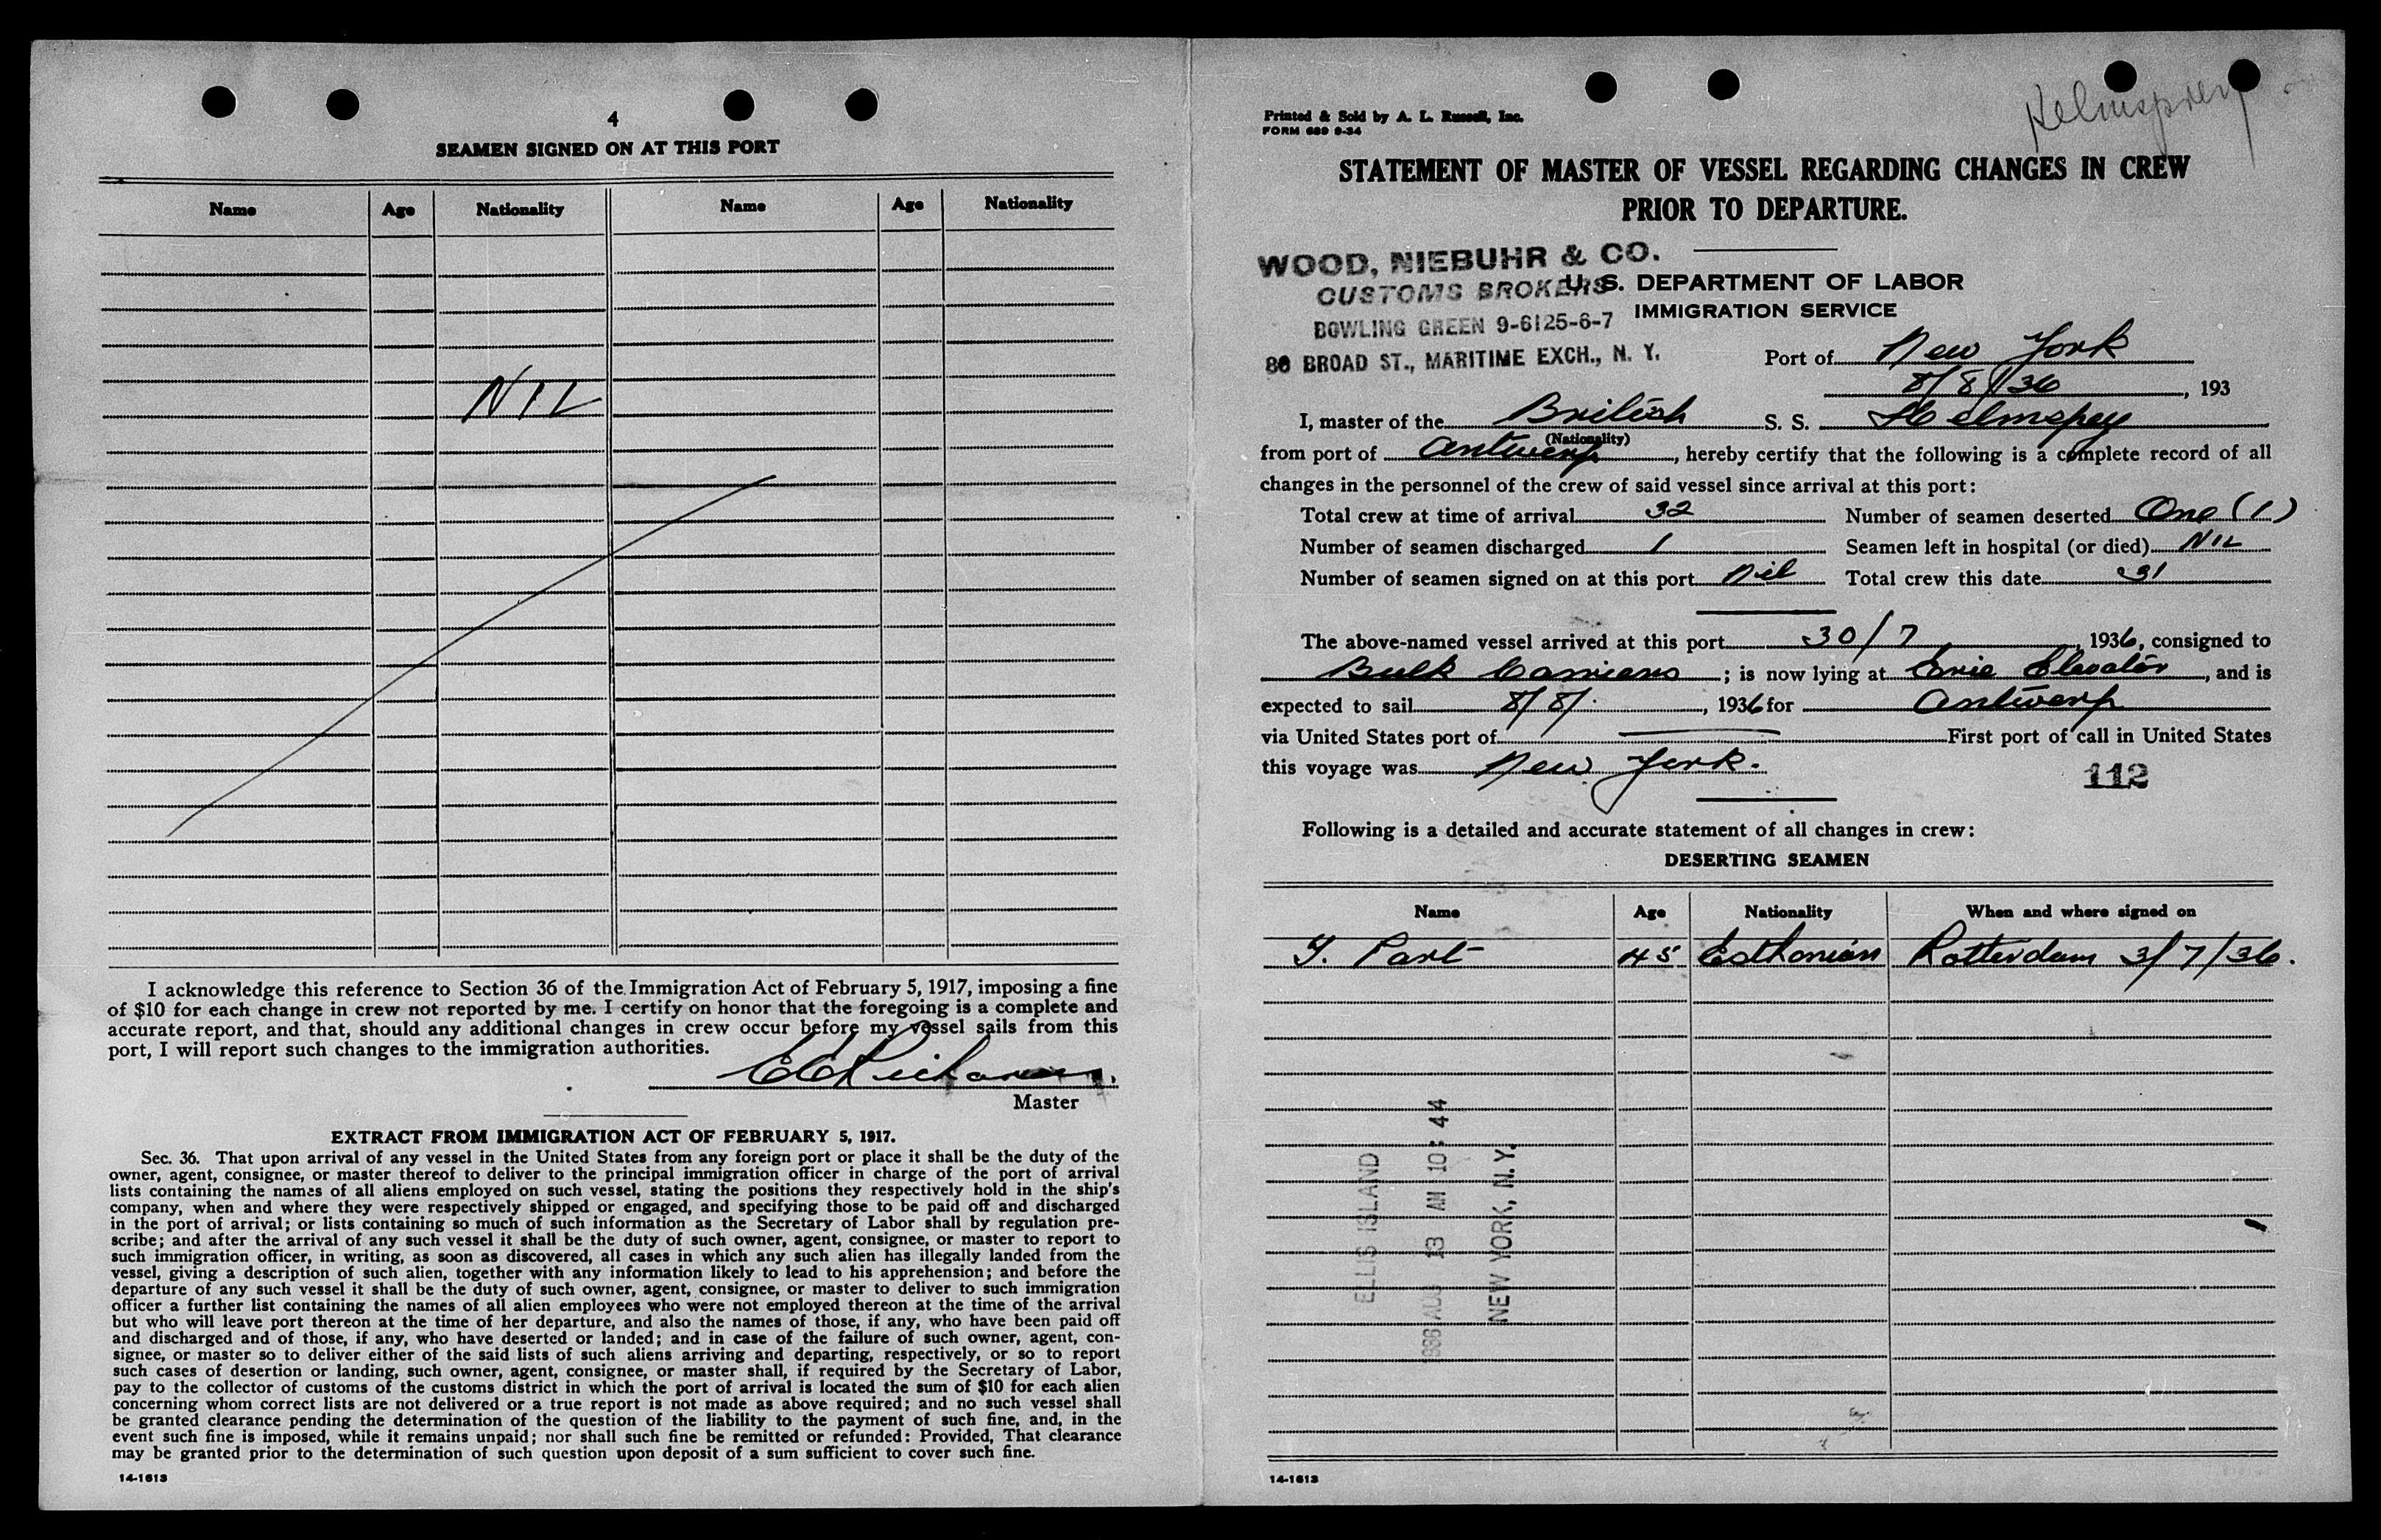 4
SEAMEN SIGNED ON AT THIS PORT
Name Age Nationality Name Age Nationality
NIL
I acknowledge this reference to Section 36 of the Immigration Act of February 5, 1917, imposing a fine
of $10 for each change in crew not reported by me. I certify on honor that the foregoing is a complete and
accurate report, and that, should any additional changes in crew occur before my vessel sails from this
port, I will report such changes to the immigration authorities.
Master
EXTRACT FROM IMMIGRATION ACT OF FEBRUARY 5, 1917.
Sec. 36. That upon arrival of any vessel in the United States from any foreign port or place it shall be the duty of the
owner, agent, consignee, or master thereof to deliver to the principal immigration officer in charge of the port of arrival
lists containing the names of all aliens employed on such vessel, stating the positions they respectively hold in the ship's
company, when and where they were respectively shipped or engaged, and specifying those to be paid off and discharged
in the port of arrival; or lists containing so much of such information as the Secretary of Labor shall by regulation pre-
scribe; and after the arrival of any such vessel it shall be the duty of such owner, agent, consignee, or master to report to
such immigration officer, in writing, as soon as discovered, all cases in which any such alien has illegally landed from the
vessel, giving a description of such alien, together with any information likely to lead to his apprehension; and before the
departure of any such vessel it shall be the duty of such owner, agent, consignee, or master to deliver to such immigration
officer a further list containing the names of all alien employees who were not employed thereon at the time of the arrival
but who will leave port thereon at the time of her departure, and also the names of those, if any, who have been paid off
and discharged and of those, if any, who have deserted or landed; and in case of the failure of such owner, agent, con-
signee, or master so to deliver either of the said lists of such aliens arriving and departing, respectively, or so to report
such cases of desertion or landing, such owner, agent, consignee, or master shall, if required by the Secretary of Labor,
pay to the collector of customs of the customs district in which the port of arrival is located the sum of $10 for each alien
concerning whom correct lists are not delivered or a true report is not made as above required; and no such vessel shall
be granted clearance pending the determination of the question of the liability to the payment of such fine, and, in the
event such fine is imposed, while it remains unpaid; nor shall such fine be remitted or refunded: Provided, That clearance
may be granted prior to the determination of such question upon deposit of a sum sufficient to cover such fine.
14-1613
Printed & Sold by A. L. Russell, Inc.
FORM 689 9-34
STATEMENT OF MASTER OF VESSEL REGARDING CHANGES IN CREW
PRIOR TO DEPARTURE.
WOOD, NIEBUHR & CO.
CUSTOMS BROKERS
BOWLING GREEN 9-6125-6-7
80 BROAD ST., MARITIME EXCH., N. Y.
U. S. DEPARTMENT OF LABOR
IMMIGRATION SERVICE
Port of New York
8/8/36, 193
I, master of the British S. S. Helmspey
(Nationality)
from port of Antwerp, hereby certify that the following is a complete record of all
changes in the personnel of the crew of said vessel since arrival at this port:
Total crew at time of arrival 32 Number of seamen deserted One (1)
Number of seamen discharged 1 Seamen left in hospital (or died) NIL
Number of seamen signed on at this port Nil Total crew this date 31
The above-named vessel arrived at this port 30/7, 1936, consigned to
Bulk Carriers; is now lying at Erie Elevator, and is
expected to sail 8/8/., 1936 for Antwerp
via United States port of First port of call in United States
this voyage was New York.
112
Following is a detailed and accurate statement of all changes in crew:
DESERTING SEAMEN
Name Age Nationality When and where signed on
J. Part 45 Esthonian Rotterdam 3/7/36.
ELLIS ISLAND
1936 AUG 13 AM 10:44
NEW YORK, N. Y.
14-1613